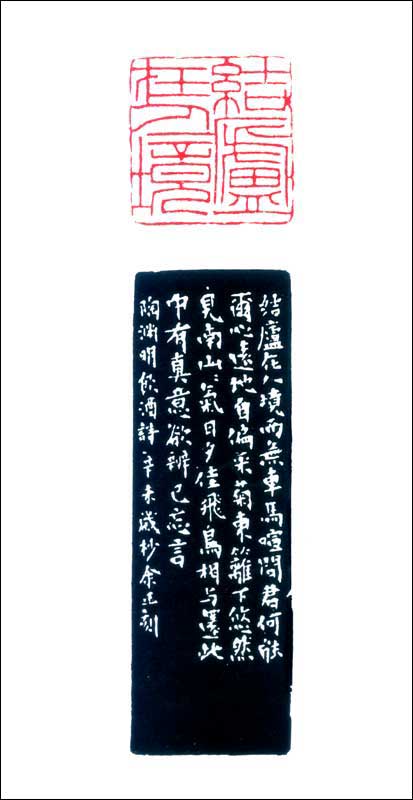 結廬
在人境
結廬在人境而無車馬喧問君何能
爾心遠地自偏采菊東籬下悠然
見南山〻氣日夕佳飛鳥相与還此
中有真意欲辨已忘言
陶渊明飲酒詩辛未歲杪余正刻